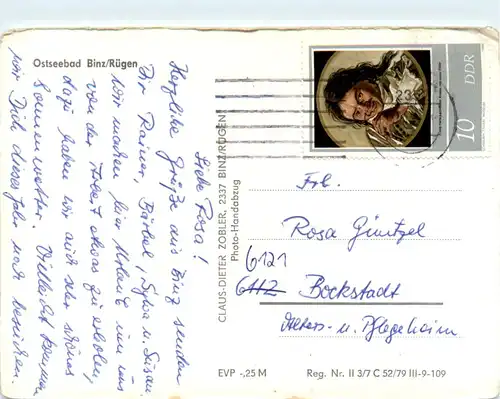 Ostseebad Binz/Rügen
Liebe Rosa!
Herzliche Grüße aus Binz senden
Dir Rainer, Bärbel, Sylvia u. Susan.
Wir machen hier Urlaub um uns
von der Arbeit etwas zu erholen,
dazu haben wir auch sehr schönes
Sonnenwetter. Vielleicht kommen
wir Dich dieses Jahr noch besuchen.
CLAUS-DIETER ZOBLER, 2337 BINZ/RÜGEN
Photo-Handabzug
DDR
10
Frl.
Rosa Güntzel
6121
6112 Bockstadt
Alters- u. Pflegeheim
EVP -,25 M
Reg. Nr. II 3/7 C 52/79 III-9-109